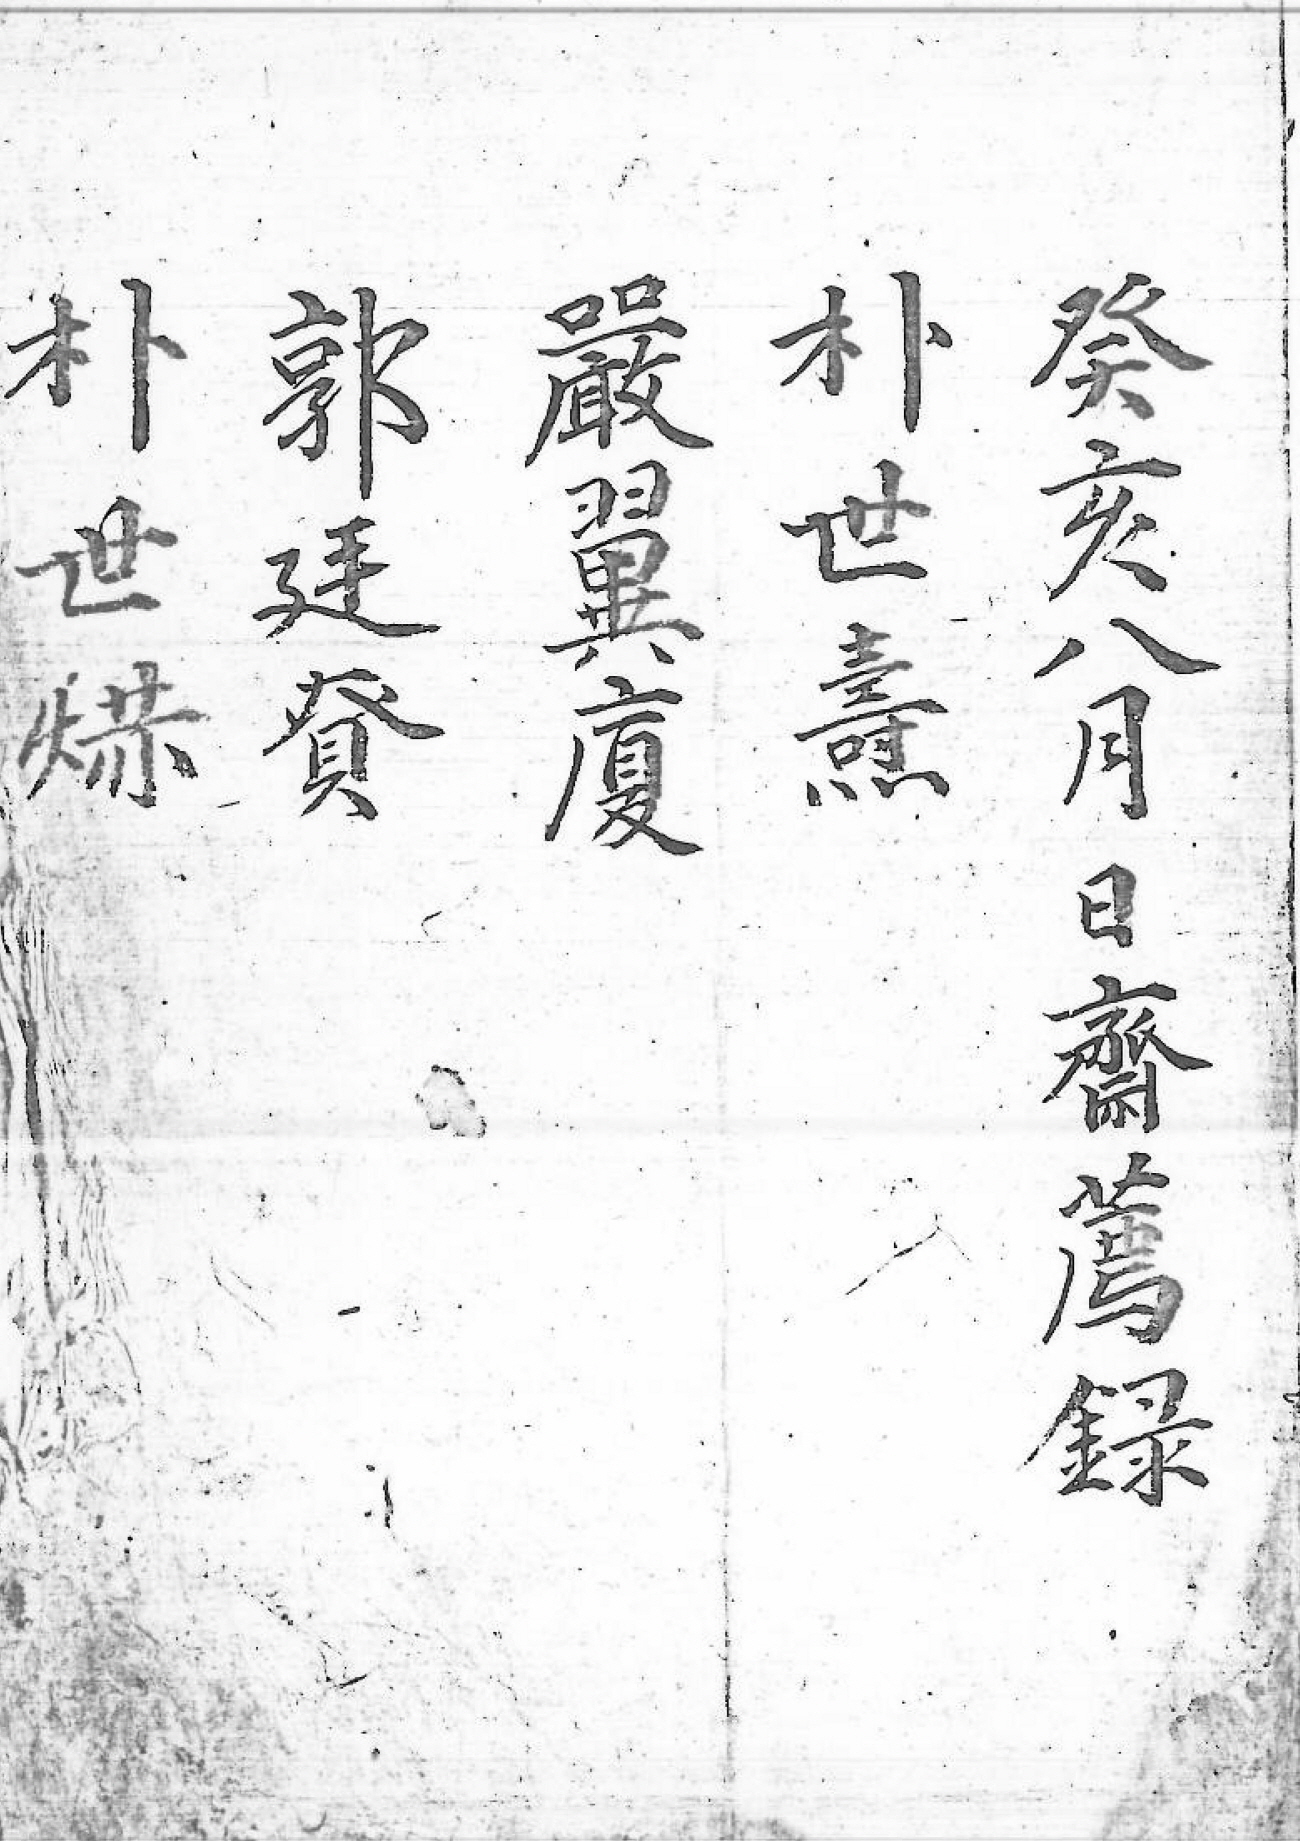 癸亥八月 日齋薦録
朴世燾
嚴翼廈
郭廷
朴世